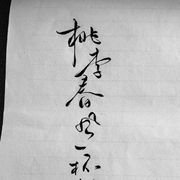 桃李春风一杯